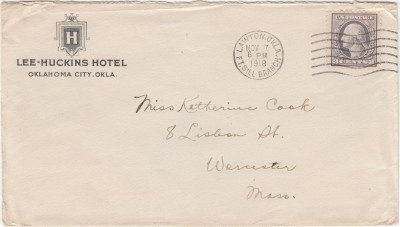 H
LEE-HUCKINS HOTEL
OKLAHOMA CITY, OKLA.
LAWTON, OKLA.
NOV 7
6 PM
1918
FT. SILL BRANCH
Miss Katherine Cook
8 Lisbon St.
Worcester
Mass.